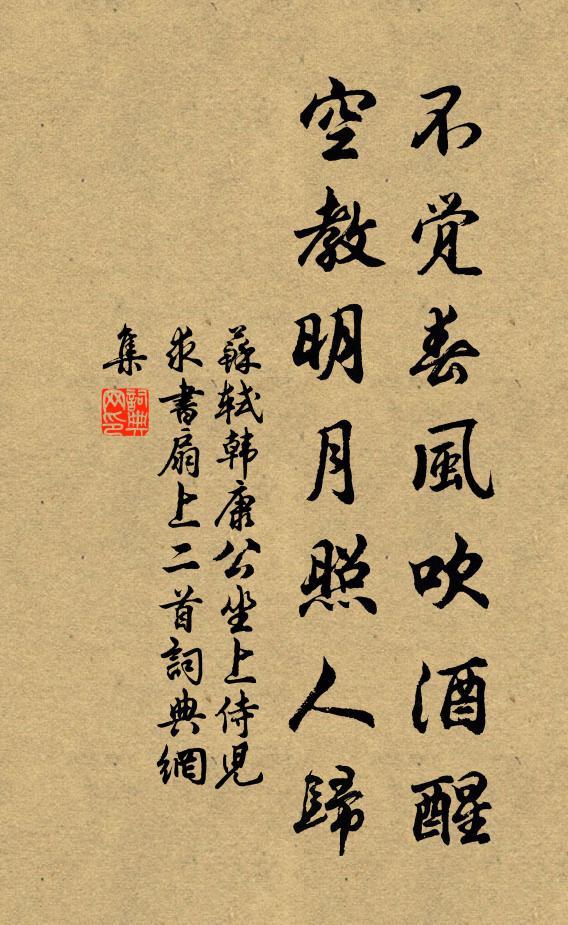 不觉春風吹酒醒
空教明月照人歸
蘇轼韩康公坐上侍児
求書扇上二首詞典網
集
詞典网印